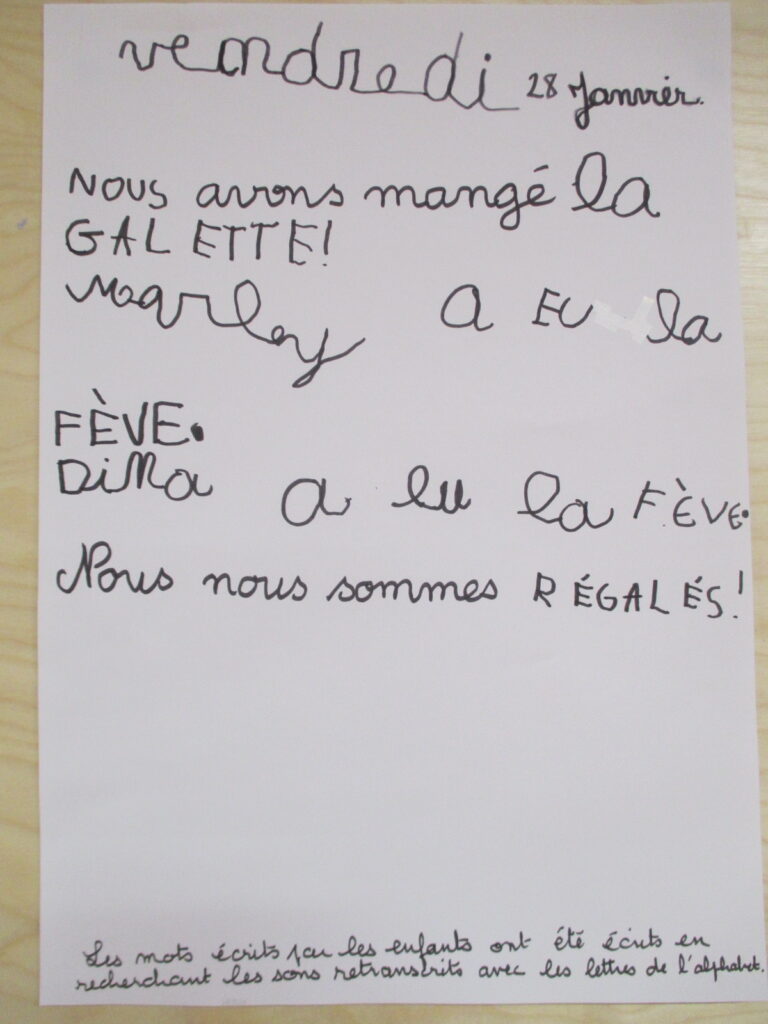 vendredi 28 Janvier.
Nous avons mangé la
GALETTE!
Marley a EU la
FÈVE.
DiNa a eu la FÈVE.
Nous nous sommes RÉGALÉS!
Les mots écrits par les enfants ont été écrits en
recherchant les sons retranscrits avec les lettres de l'alphabet.